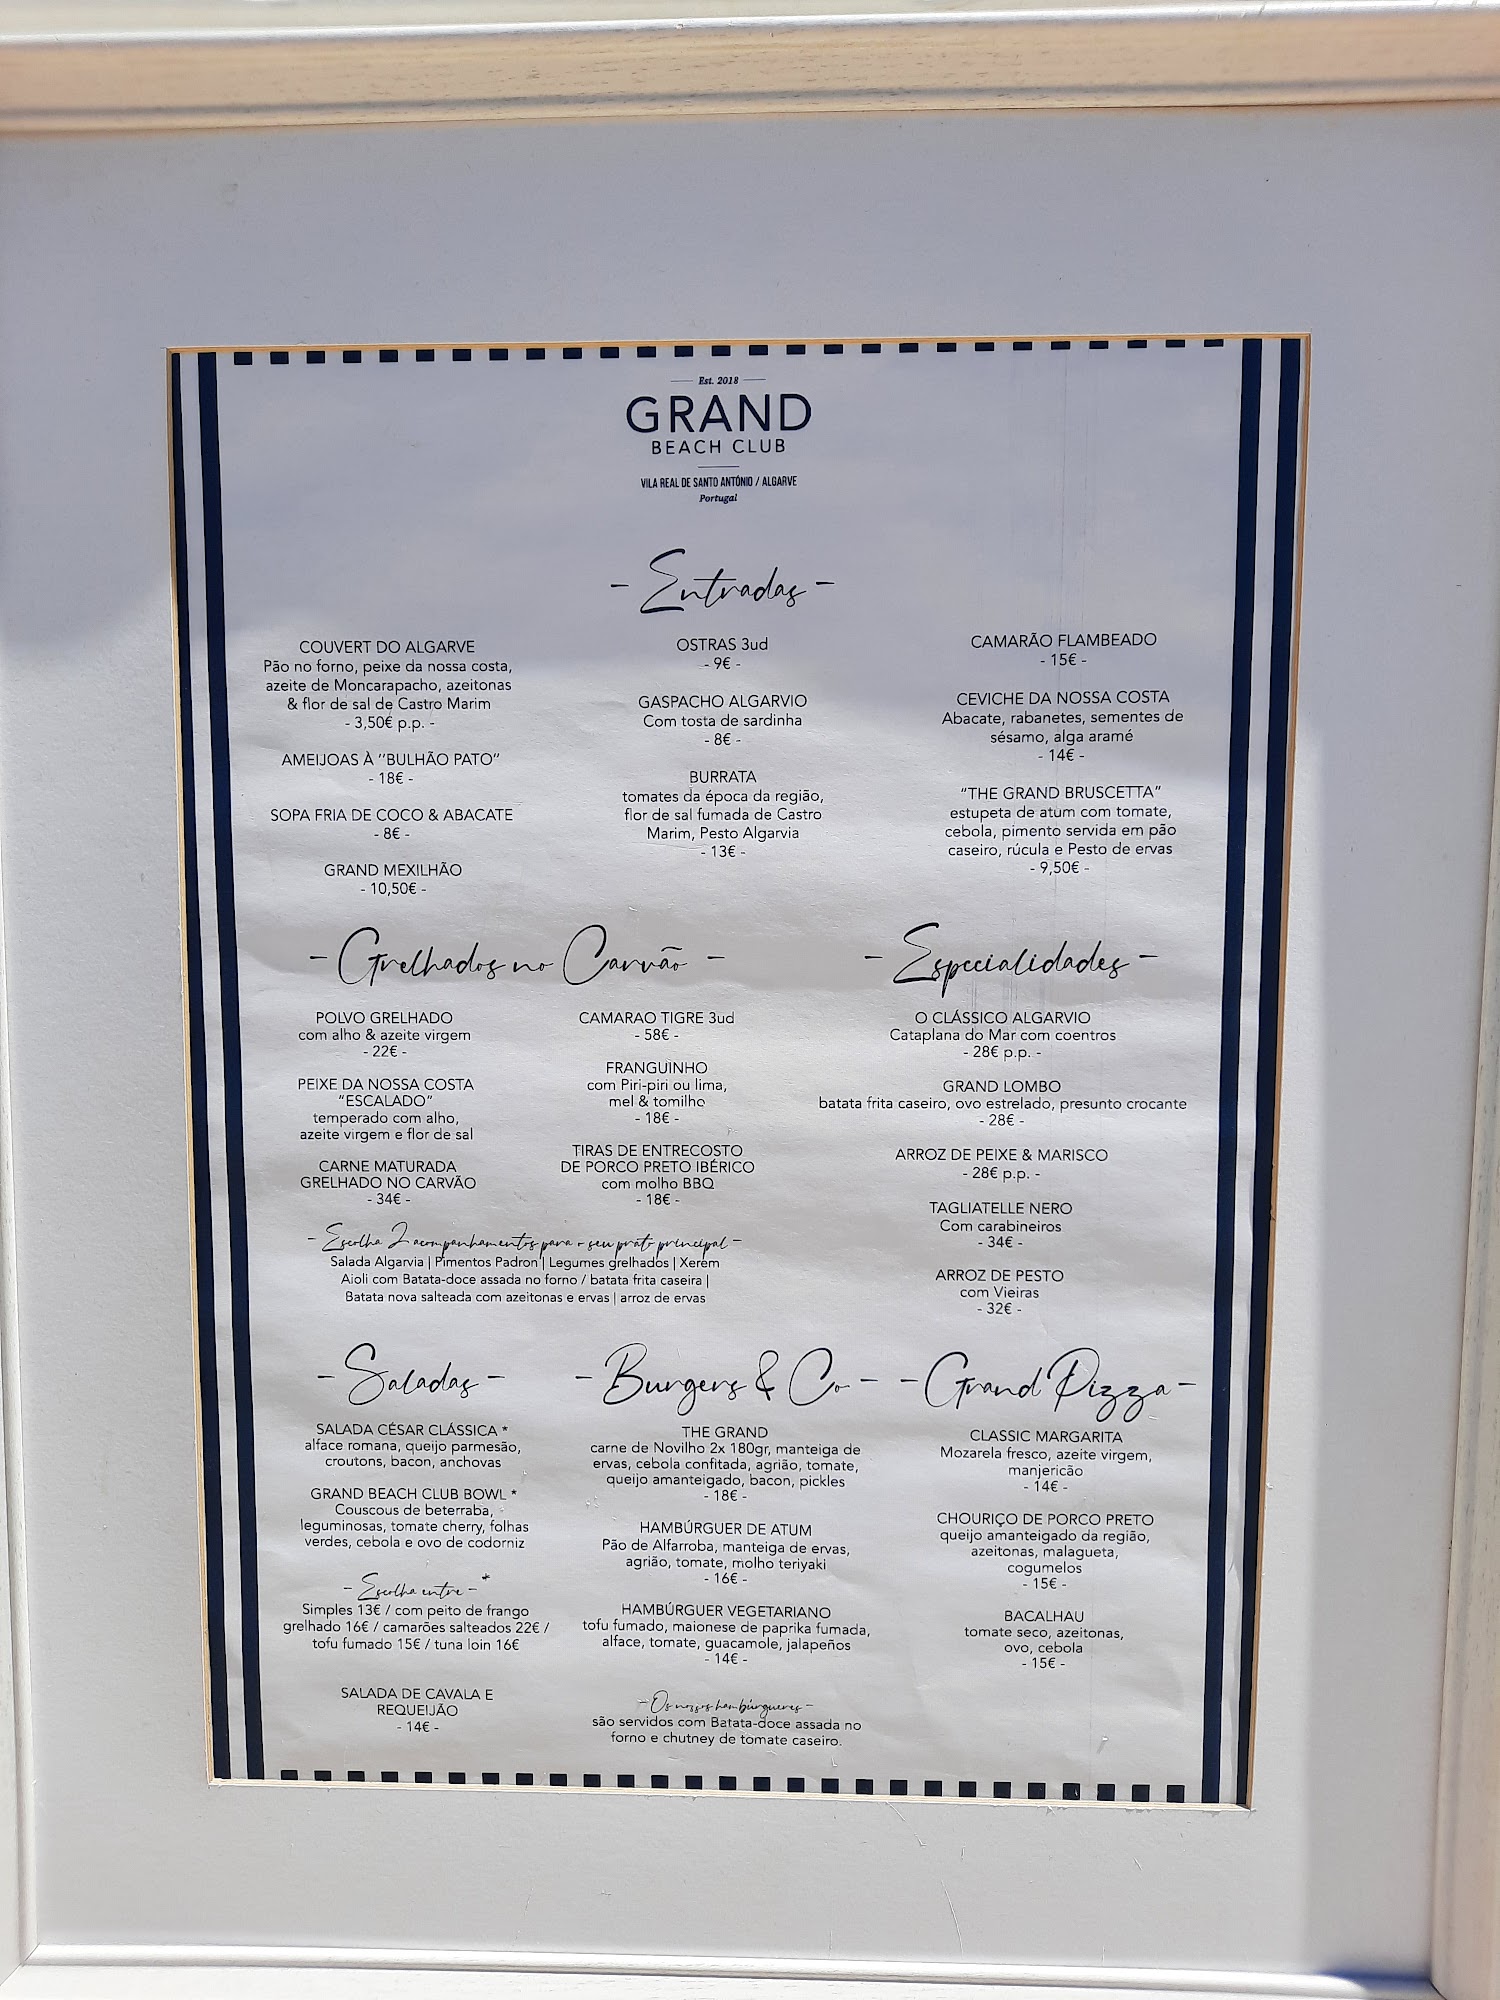 Est. 2018
GRAND
BEACH CLUB
VILA REAL DE SANTO ANTÓNIO / ALGARVE
Portugal
- Entradas -
COUVERT DO ALGARVE
Pão no forno, peixe da nossa costa,
azeite de Moncarapacho, azeitonas
& flor de sal de Castro Marim
- 3,50€ p.p. -
AMEIJOAS À ’’BULHÃO PATO’’
- 18€ -
SOPA FRIA DE COCO & ABACATE
- 8€ -
GRAND MEXILHÃO
- 10,50€ -
OSTRAS 3ud
- 9€ -
GASPACHO ALGARVIO
Com tosta de sardinha
- 8€ -
BURRATA
tomates da época da região,
flor de sal fumada de Castro
Marim, Pesto Algarvia
- 13€ -
CAMARÃO FLAMBEADO
- 15€ -
CEVICHE DA NOSSA COSTA
Abacate, rabanetes, sementes de
sésamo, alga aramé
- 14€ -
“THE GRAND BRUSCETTA”
estupeta de atum com tomate,
cebola, pimento servida em pão
caseiro, rúcula e Pesto de ervas
- 9,50€ -
- Grelhados no Carvão -
POLVO GRELHADO
com alho & azeite virgem
- 22€ -
PEIXE DA NOSSA COSTA
“ESCALADO”
temperado com alho,
azeite virgem e flor de sal
CARNE MATURADA
GRELHADO NO CARVÃO
- 34€ -
CAMARAO TIGRE 3ud
- 58€ -
FRANGUINHO
com Piri-piri ou lima,
mel & tomilho
- 18€ -
TIRAS DE ENTRECOSTO
DE PORCO PRETO IBÉRICO
com molho BBQ
- 18€ -
- Escolha 2 acompanhamentos para o seu prato principal -
Salada Algarvia | Pimentos Padron | Legumes grelhados | Xerém
Aioli com Batata-doce assada no forno / batata frita caseira |
Batata nova salteada com azeitonas e ervas | arroz de ervas
- Especialidades -
O CLÁSSICO ALGARVIO
Cataplana do Mar com coentros
- 28€ p.p. -
GRAND LOMBO
batata frita caseiro, ovo estrelado, presunto crocante
- 28€ -
ARROZ DE PEIXE & MARISCO
- 28€ p.p. -
TAGLIATELLE NERO
Com carabineiros
- 34€ -
ARROZ DE PESTO
com Vieiras
- 32€ -
- Saladas -
SALADA CÉSAR CLÁSSICA *
alface romana, queijo parmesão,
croutons, bacon, anchovas
GRAND BEACH CLUB BOWL *
Couscous de beterraba,
leguminosas, tomate cherry, folhas
verdes, cebola e ovo de codorniz
- Escolha entre - *
Simples 13€ / com peito de frango
grelhado 16€ / camarões salteados 22€ /
tofu fumado 15€ / tuna loin 16€
SALADA DE CAVALA E
REQUEIJÃO
- 14€ -
- Burgers & Co -
THE GRAND
carne de Novilho 2x 180gr, manteiga de
ervas, cebola confitada, agrião, tomate,
queijo amanteigado, bacon, pickles
- 18€ -
HAMBÚRGUER DE ATUM
Pão de Alfarroba, manteiga de ervas,
agrião, tomate, molho teriyaki
- 16€ -
HAMBÚRGUER VEGETARIANO
tofu fumado, maionese de paprika fumada,
alface, tomate, guacamole, jalapeños
- 14€ -
- Os nossos hambúrgueres -
são servidos com Batata-doce assada no
forno e chutney de tomate caseiro.
- Grand Pizza -
CLASSIC MARGARITA
Mozarela fresco, azeite virgem,
manjericão
- 14€ -
CHOURIÇO DE PORCO PRETO
queijo amanteigado da região,
azeitonas, malagueta,
cogumelos
- 15€ -
BACALHAU
tomate seco, azeitonas,
ovo, cebola
- 15€ -